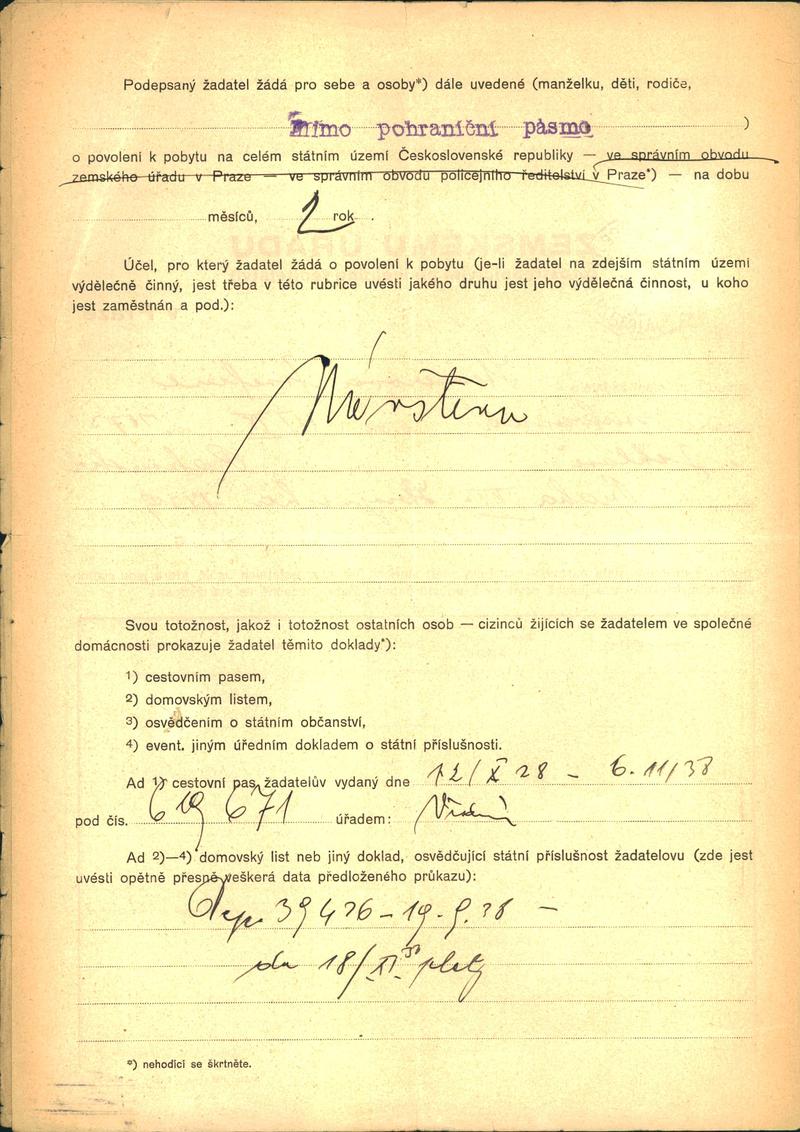 Podepsaný žadatel žádá pro sebe a osoby*) dále uvedené (manželku, děti, rodiče,
Mimo pohraniční pásmo )
o povolení k pobytu na celém státním území Československé republiky — ve správním obvodu
zemského úřadu v Praze — ve správním obvodu policejního ředitelství v Praze*) — na dobu
měsíců, 2 rok .
Účel, pro který žadatel žádá o povolení k pobytu (je-li žadatel na zdejším státním území
výdělečně činný, jest třeba v této rubrice uvésti jakého druhu jest jeho výdělečná činnost, u koho
jest zaměstnán a pod.):
Návštěva
Svou totožnost, jakož i totožnost ostatních osob — cizinců žijících se žadatelem ve společné
domácnosti prokazuje žadatel těmito doklady*):
1) cestovním pasem,
2) domovským listem,
3) osvědčením o státním občanství,
4) event. jiným úředním dokladem o státní příslušnosti.
Ad 1) cestovní pas žadatelův vydaný dne 12/X 28 – 6.11/38
pod čís. 619671 úřadem:
Ad 2)—4) domovský list neb jiný doklad, osvědčující státní příslušnost žadatelovu (zde jest
uvésti opětně přesně veškerá data předloženého průkazu):
39476 – 19.9.38 –
do 18/XI 38 platý
*) nehodící se škrtněte.